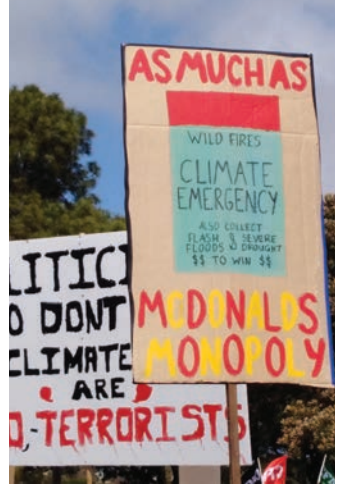 AS MUCH AS
WILD FIRES
CLIMATE
EMERGENCY
ALSO COLLECT
FLASH & SEVERE
FLOODS & DROUGHT
$$ TO WIN $$
MCDONALDS
MONOPOLY
DONT
CLIMATE
ARE
-TERRORISTS